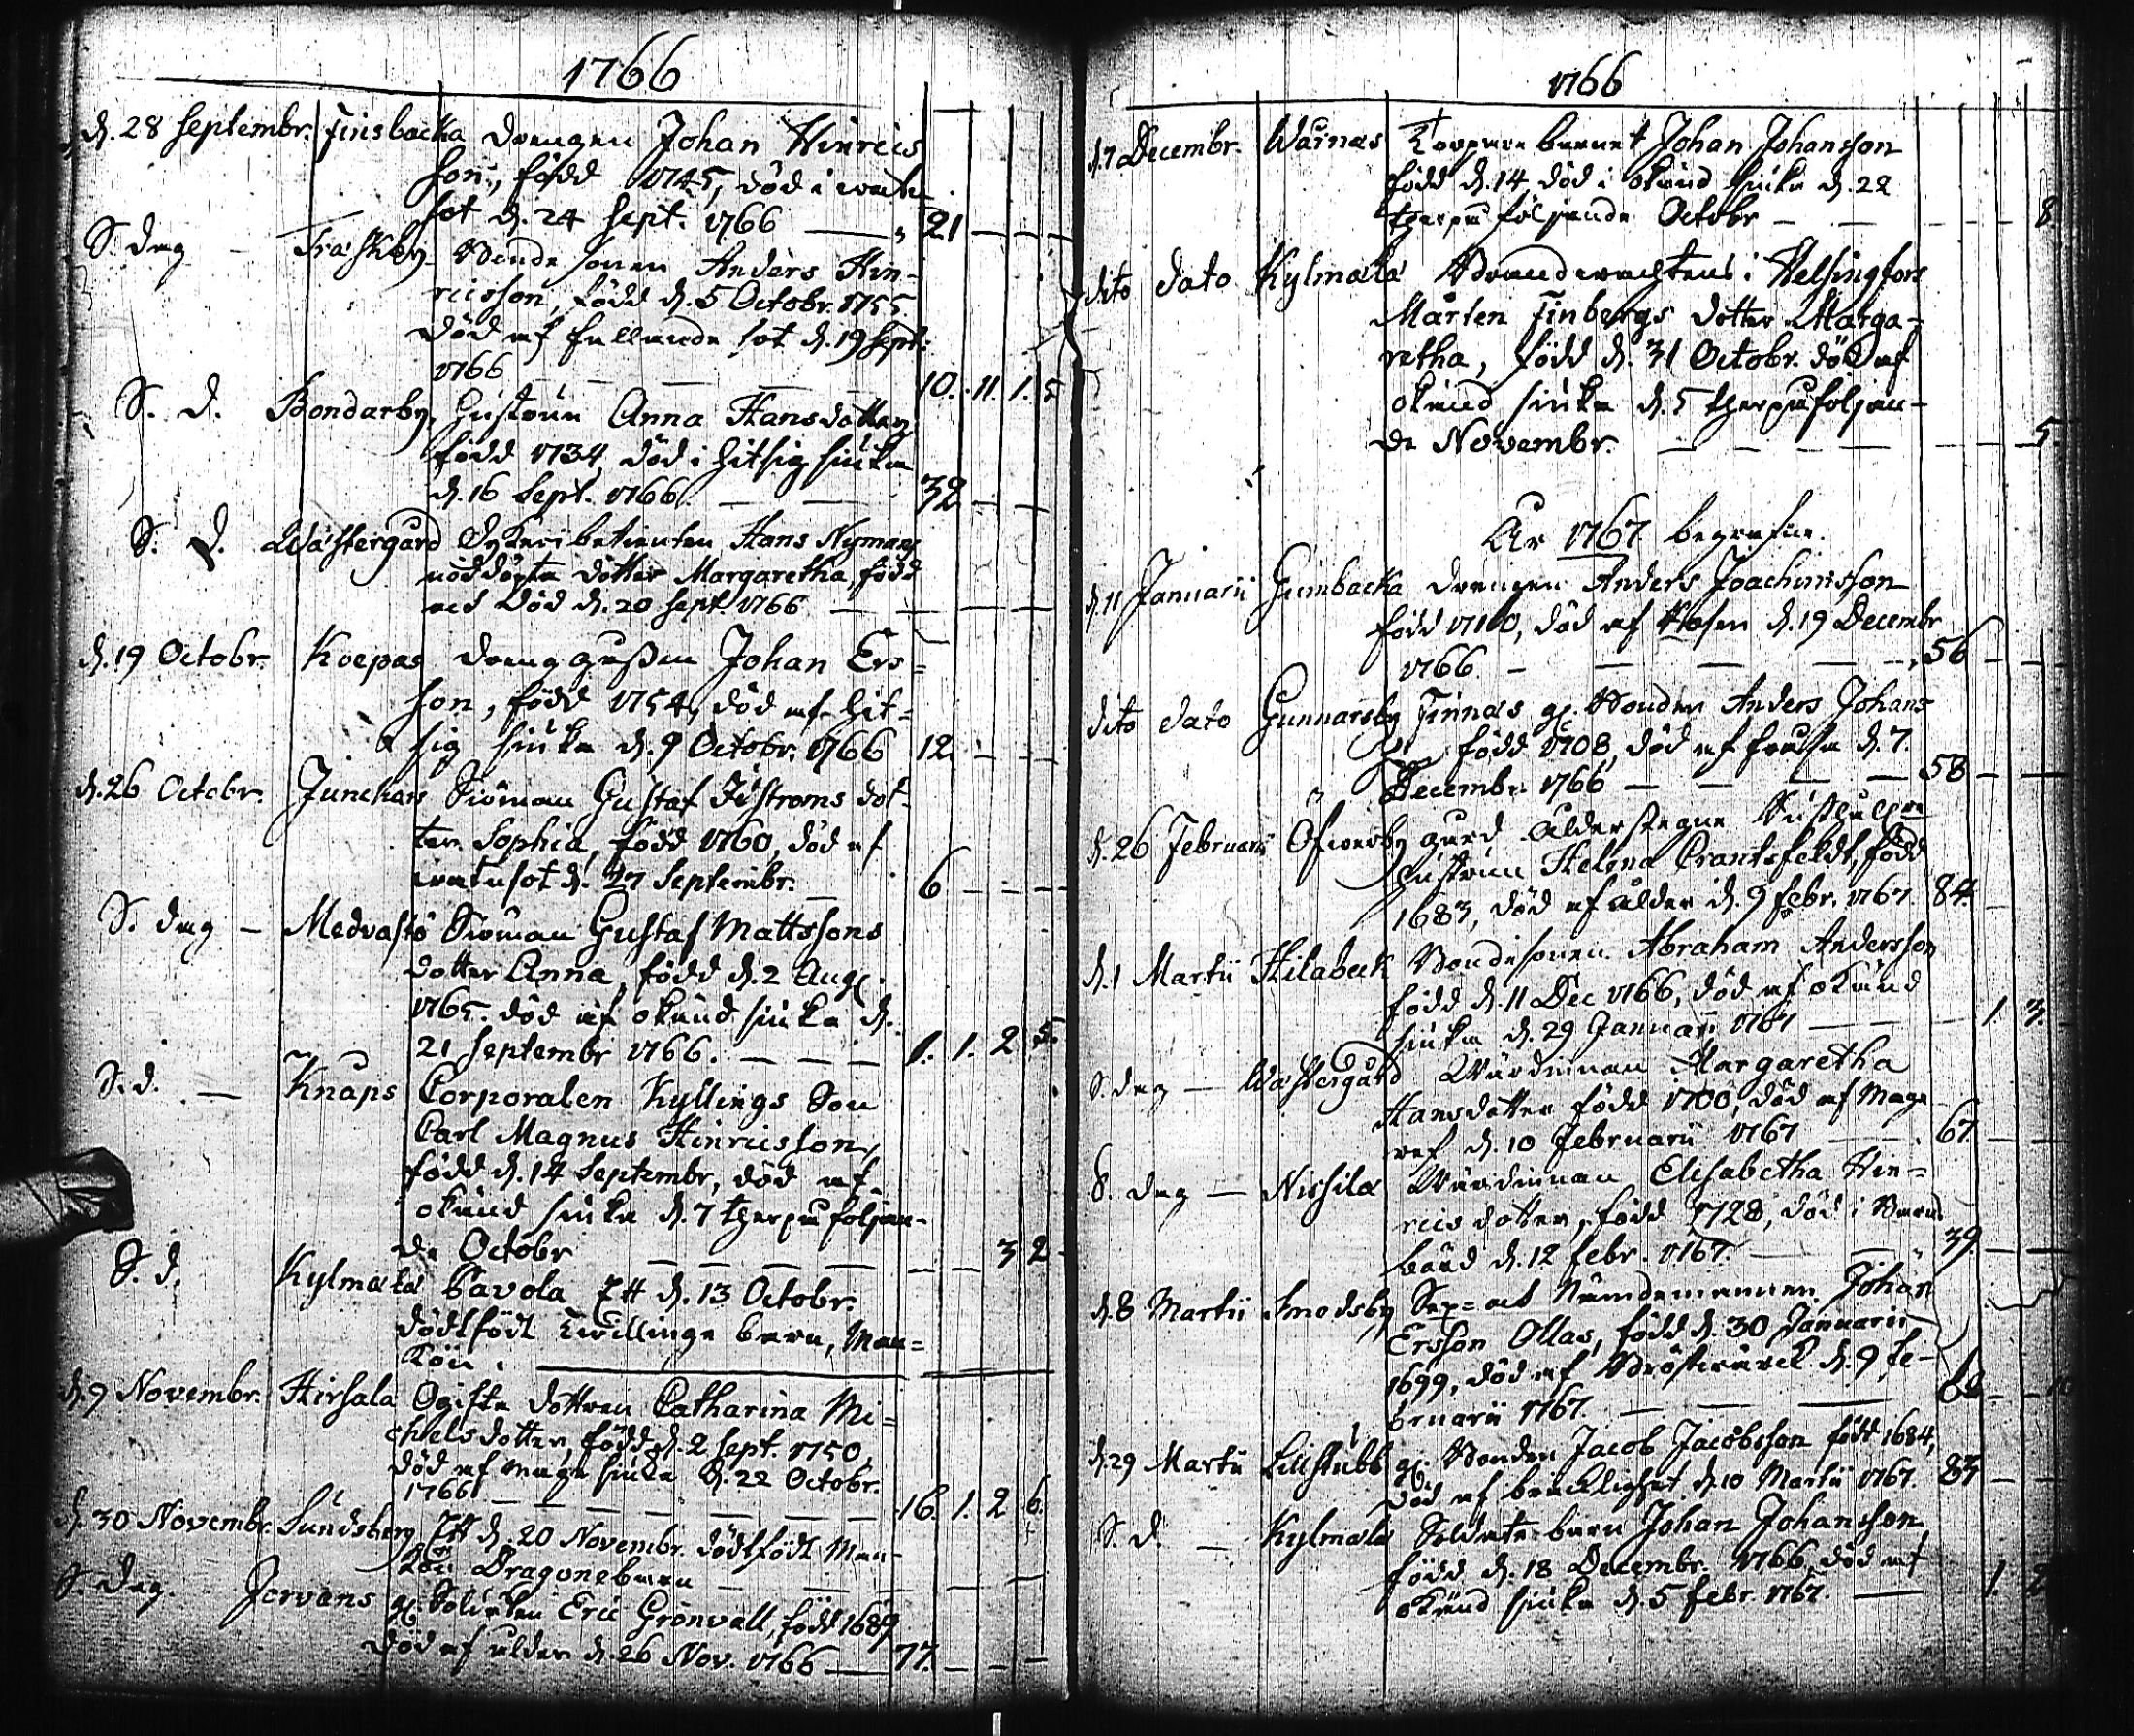 1766
d. 28 Septembr. Finsbacka Drengen Johan Hinrics
son, född 1745, död i
sot d. 24 Sept. 1766 — 21 — — —
S. dag — Träskby Bonde sonen Anders Hin-
ricsson, född d. 5 Octobr. 1755.
död af fallande sot d. 19 Sept:
1766 — — — — 10. 11. 1. 5
S. d. Bondarby, hustrun Anna Hansdotter,
född 1734, död i hitsig siuka
d. 16 Sept. 1766. — — 32 — — —
S. d. Wästergård Hans Nymans
nöddöpta dotter Margaretha, född
och död d. 20 Sept. 1766 — — — —
d. 19 Octobr. Koepas Dreng gåssen Johan Ers=
son, född 1754, död af hit=
sig siuka d. 9 Octobr. 1766 12 — — —
d. 26 Octobr. Junckars Siöman Gustaf dot-
ter Sophia, född 1760, död af
d. 27 Septembr. — 6 — — —
S. dag — Medvastö Siöman Gustaf Mattssons
dotter Anna, född d. 2 Aug.
1765. död af okänd siuka d.
21 Septembr 1766. — — — 1. 1. 2 5.
S. d. — Knaps Corporalen Kyllings Son
Carl Magnus Hinricsson,
född d. 14 Septembr, död af
okänd siuka d. 7 therpå följan-
de Octobr — — — — — — 3 2
S. d. Kylmälä Cavola Ett d. 13 Octobr.
dödfödt Twillinge barn, Man=
kön. —
d. 9 Novembr. Hirsala Ogifta dottren Catharina Mi=
chelsdotter, född d. 2 Sept. 1750,
död af siuka d. 22 Octobr.
1766 — — — — — — 16. 1. 2 6.
d. 30 Novembr. Sundsberg Ett d. 20 Novembr. dödfödt Man-
kön Dragonebarn — — — — —
S. dag. Jorvans gl. Soldaten Eric Grönvall, född 1689
död af ålder d. 26 Nov. 1766 — 77. — — —
1766
d. 7 Decembr. Wårnas barnet Johan Johansson
född d. 14, död i okänd siuka d. 22
therpå följande Octobr — — — — 8
dito dato Kylmälä Brandvachtens i Helsingfors
Mårten Finbergs dotter Marga-
retha, född d. 31 Octobr. död af
okänd siuka d. 5 therpåföljan-
de Novembr. — — — — — — 5
År 1767 begrafne.
d. 11 Januarii Gumbacka Drengen Anders Joachimsson
född 1710, död af d. 19 Decembr
1766 — — — — 56 — — —
dito dato Gunnarsby Finnas gl. Bonden Anders Johans
född 1708, död af d. 7.
Decembr. 1766 — — — 58 — —
d. 26 Februarii Öfwerby gård ålderstegne
hustrun Helena Crantsfeldt, född
1683, död af ålder d. 9 Febr. 1767 84. —
d. 1 Martii Hilabeck Bondesonen Abraham Andersson
född d. 11 Dec 1766, död af okänd
siuka d. 29 Januarii 1767 — — 1. 3.
S. dag — Wästergård Wärdinnan Margaretha
Hansdotter född 1700, död af Mag-
d. 10 Februarii 1767 — — 67 — —
S. dag — Nissilä Wärdinnan Elisabetha Hin=
rics dotter, född 1728, död i Barn
börd d. 12 Febr. 1767. — — 39 — —
d. 8 Martii Smedsby Sex= och Nämdemannen Johan
Ersson Ollas, född d. 30 Januarii
1699, död af Bröstwärck d. 9 Fe-
bruarii 1767. — — — — 10
d. 29 Martii Lillstubb gl. Bonden Jacob Jacobsson född 1684,
död af bräcklighet d. 10 Martii 1767. 83 — —
S. d. — Kylmälä Soldate barn Johan Johansson,
född d. 18 Decembr. 1766, död af
okänd siuka d. 5 Febr. 1767. — 1. 2